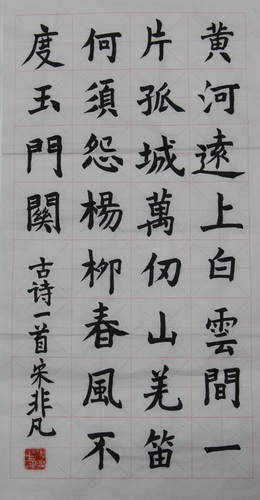 黄河遠上白雲間一
片孤城萬仞山羌笛
何須怨楊柳春風不
度玉門關
古诗一首宋非凡